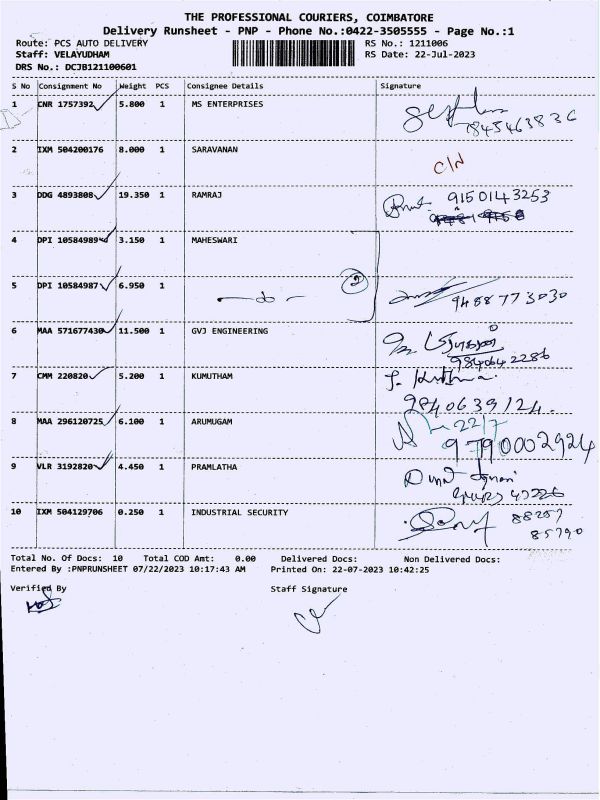 THE PROFESSIONAL COURIERS, COIMBATORE
Delivery Runsheet - PNP - Phone No.:0422-3505555 - Page No.:1
Route: PCS AUTO DELIVERY
RS No.: 1211006
Staff: VELAYUDHAM
RS Date: 22-Jul-2023
DRS No.: DCJB121100601
S No Consignment No Weight PCS Consignee Details Signature
1 CNR 1757392 5.800 1 MS ENTERPRISES
7845463836
2 IXM 504200176 8.000 1 SARAVANAN
C/N
3 DDG 4893808 19.350 1 RAMRAJ 9150143253
4 DPI 10584989 3.150 1 MAHESWARI
5 DPI 10584987 6.950 1 - do - 2
9488773030
6 MAA 571677430 11.500 1 GVJ ENGINEERING
9840642286
7 CMM 220820 5.200 1 KUMUTHAM
9840639124.
8 MAA 296120725 6.100 1 ARUMUGAM 22/7
9790002924
9 VLR 3192820 4.450 1 PRAMLATHA
10 IXM 504129706 0.250 1 INDUSTRIAL SECURITY 88207
85790
Total No. Of Docs: 10 Total COD Amt: 0.00 Delivered Docs: Non Delivered Docs:
Entered By :PNPRUNSHEET 07/22/2023 10:17:43 AM Printed On: 22-07-2023 10:42:25
Verified By Staff Signature